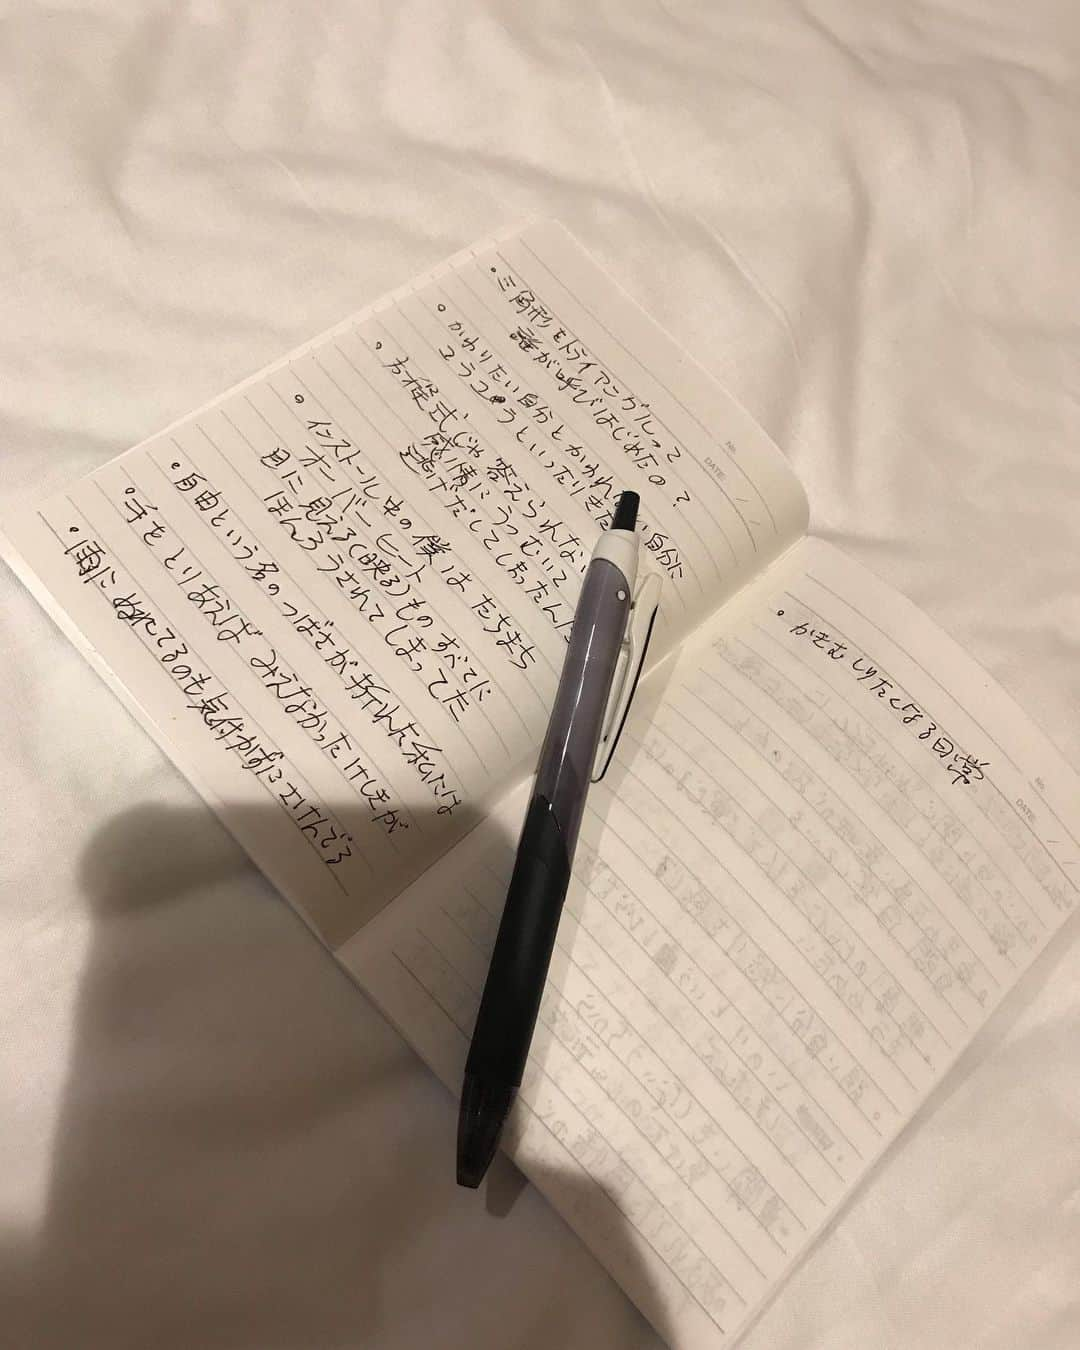 No.
DATE
・三角形をトライアングルって
誰が呼びはじめたの？
・かわりたい自分とかわれない自分に
ユラユラといったりきた
・方程式じゃ答えられない
感情にうつむいて
逃げだしてしまったんだ
・インストール中の僕は たちまち
オーバーヒート
目に見える(映る)ものすべてに
ほんろうされてしまってた
・自由という名のつばさが折れた私には
・手をとりあえば みえなかったけしきが
・雨にぬれてるのも気付かずにさけんでる
No.
DATE
・かきむしりたくなる日常